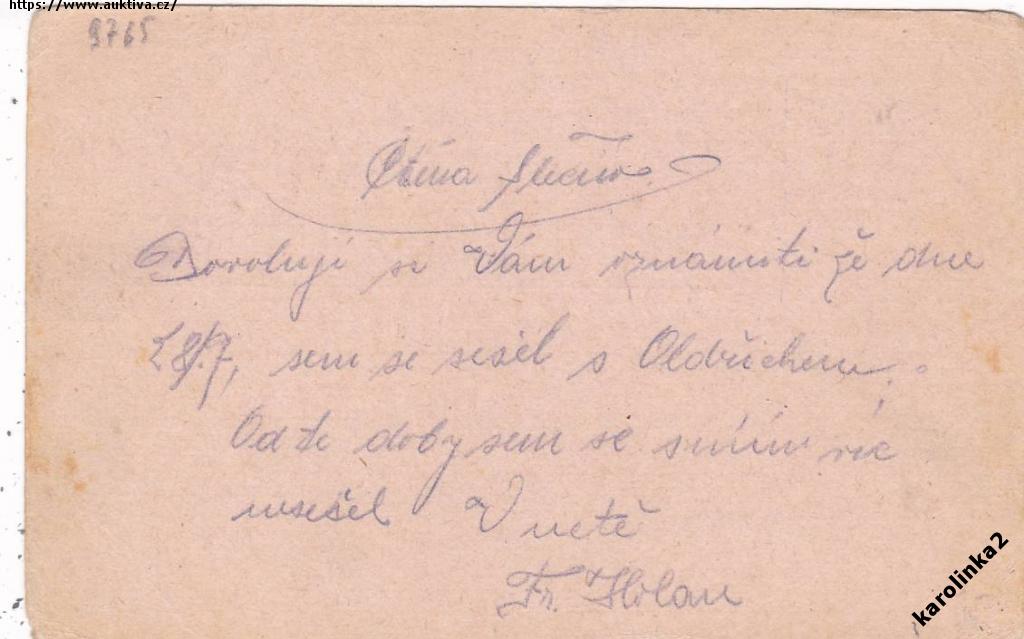 https://www.auktiva.cz/
9765
Ctěná
Dovoluji si Vám oznámiti že dne
28/7, sem se sešel s Oldřichem.
Od te doby sem se s ním víc
nesešel V uctě
Fr. Holan
karolinka2